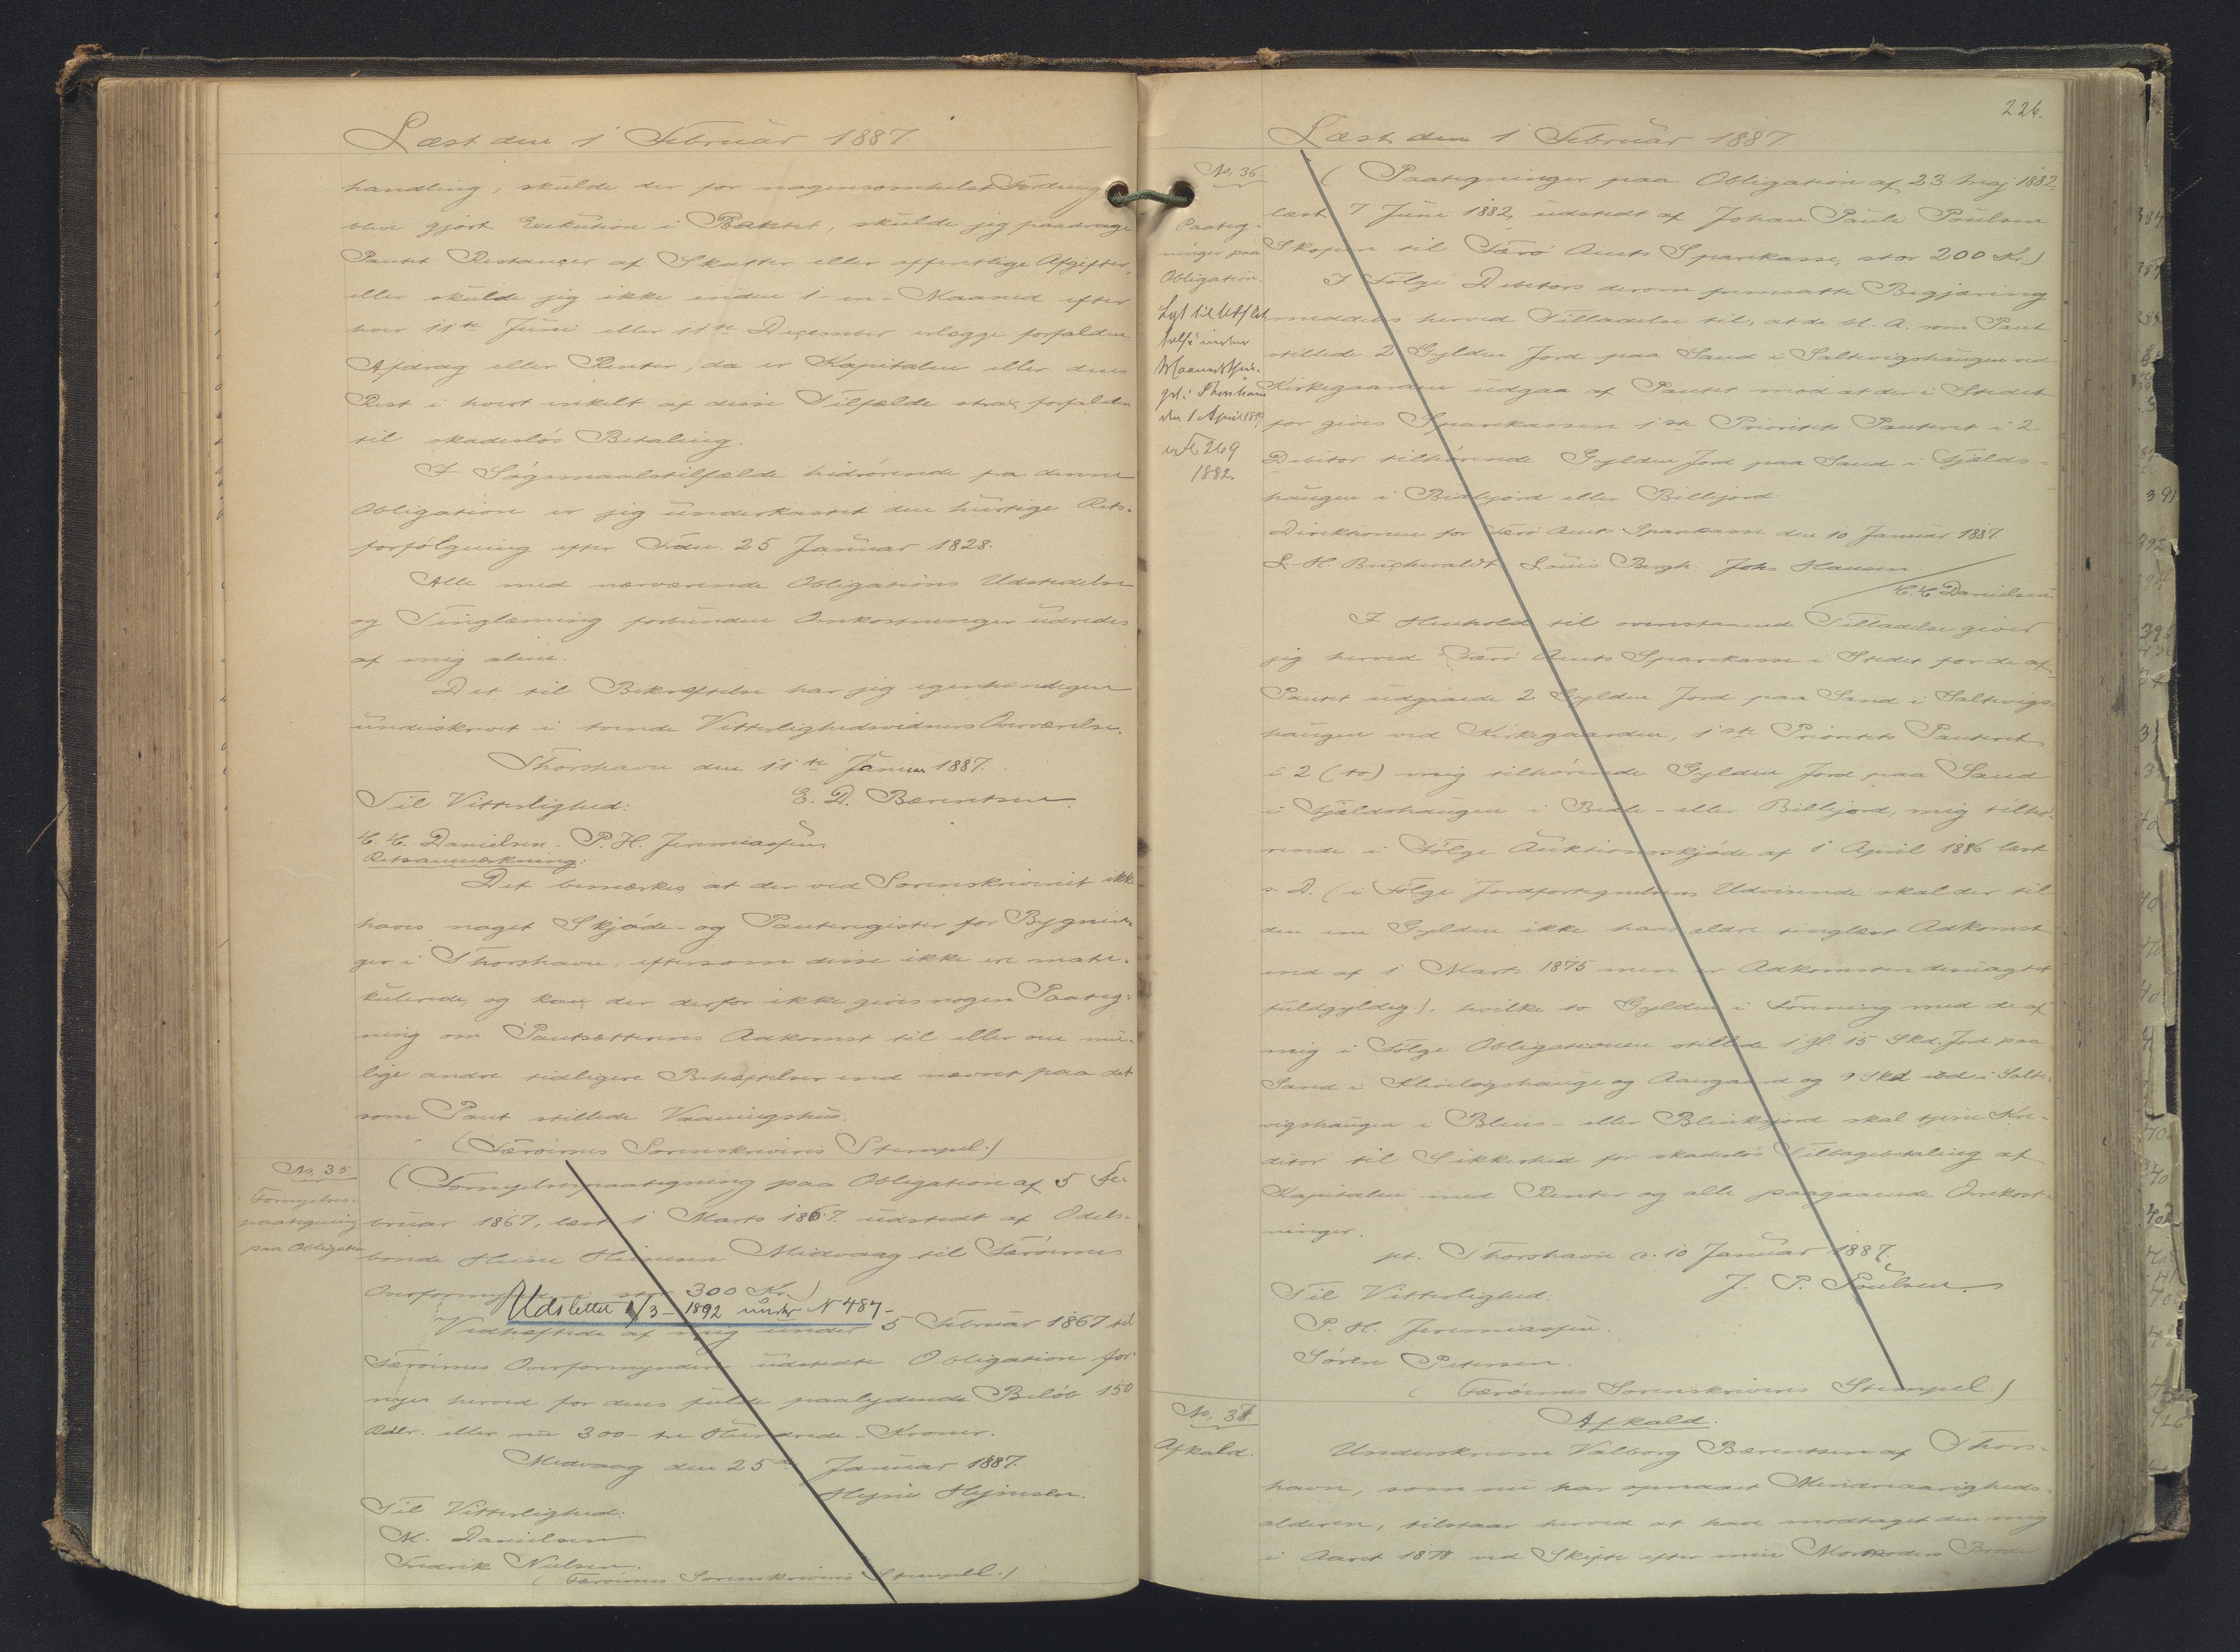 Læst den 1 Februar 1887
handling, skulde der for nogensomhelst Fordring
blive gjort Exekution i Pantet, skulde jeg paadrage
Pantet Restancer af Skatter eller offentlige Afgifter,
eller skulde jeg ikke inden 1-en-Maaned efter
hver 11te Juni eller 11te December erlægge forfaldne
Afdrag eller Renter, da er Kapitalen eller dens
Rest i hvert enkelt af disse Tilfælde strax forfalden
til skadeslös Betaling.
I Sögsmaalstilfælde hidrörende fra denne
Obligation er jeg underkastet den hurtige Rets-
forfölgning efter Frdn. 25 Januar 1828.
Alle med nærværende Obligations Udstedelse
og Tinglæsning forbundne Omkostninger udredes
af mig alene.
Det til Bekræftelse har jeg egenhændigen
underskrevet i tvende Vitterlighedsvidners Overværelse.
Thorshavn den 11te Januar 1887.
Til Vitterlighed: E. D. Bærentsen.
H. H. Danielsen. P. H. Jeremiassen.
Retsanmærkning:
Det bemærkes at der ved Sorenskriveriet ikke
haves noget Skjöde- og Panteregister for Bygnin-
ger i Thorshavn, eftersom disse ikke ere matri-
kulerede, og kan der derfor ikke gives nogen Paateg-
ning om Pantsætterens Adkomst til eller om mu-
lige andre tidligere Behæftelser end nævnet paa det
som Pant stillede Vaaningshus.
(Færöernes Sorenskriveris Stempel.)
No. 35
Fornyelses-
paategning
paa Obligation
(Fornyelsespaategning paa Obligation af 5 Fe-
bruar 1867, læst 1 Marts 1867 udstedt af Odels-
bonde Heine Heinesen Midvaag til Færöernes
Overformynderi stor 300 Kr.)
Udslettet 1/3-1892 under N 487-
Vedhæftede af mig under 5 Februar 1867 til
Færöernes Overformynderi udstedte Obligation for-
nyes herved for dens fulde paalydende Belöb 150
Rdlr. eller nu 300-tre Hundrede-Kroner.
Midvaag den 25de Januar 1887.
Hejne Hejnesen.
Til Vitterlighed:
M. Danielsen.
Fredrik Nielsen.
(Færöernes Sorenskriveris Stempel.)
226.
Læst den 1 Februar 1887.
No. 36.
Paateg-
ninger paa
Obligation.
Lyst til Udslet
telse inden
Maanedsthin-
get i Thorshavn
den 1 April
No 269
1882.
(Paategninger paa Obligation af 23 Maj 1882,
læst 7 Juni 1882, udstedt af Johan Pauli Poulsen
Skopen til Færö Amts Sparekasse, stor 200 Kr.)
I Fölge Debitors derom fremsatte Begjæring
meddeles herved Tilladelse til, at de bl. A. som Pant
stillede 2 Gylden Jord paa Sand i Saltvigshaugen ved
Kirkegaarden udgaa af Pantet mod at der i Stedet
for gives Sparekassen 1ste Prioritets Panteret i 2
Debitor tilhörende Gylden Jord paa Sand i Fjælds-
haugen i Bidlejord eller Billejord.
Direktionen for Færö Amts Sparekasse den 10 Januar 1887.
L. H. Buchwaldt Louis Bergh. Johs Hansen.
H. H. Danielsen.
I Henhold til ovenstaaende Tilladelse giver
jeg herved Færö Amts Sparekasse i Stedet for de af
Pantet udgaaede 2 Gylden Jord paa Sand i Saltvigs-
haugen ved Kirkegaarden, 1ste Prioritets Panteret
i 2 (to) mig tilhörende Gylden Jord paa Sand
i Fjældshaugen i Bidle- eller Billejord, mig tilhö-
rende i Fölge Auktionsskjöde af 1 April 1886 læst
s. D. (i Fölge Jordfortegnelsens Udvisende skal der til
den ene Gylden ikke have ældre tinglæst Adkomst
end af 1 Marts 1875 men er Adkomsten desuagtet
fuldgyldig), hvilke to Gylden i Forening med de af
mig i Fölge Obligationen stillede 1 Gl. 15 Skd. Jord paa
Sand i hauge og Aargaard og 9 Skd ibd. i Salt-
vigshaugen i Blens- eller Blenkejord skal tjene Kre-
ditor til Sikkerhed for skadeslös Tilbagebetaling af
Kapitalen med Renter og alle paagaaende Omkost-
ninger.
pt. Thorshavn d. 10 Januar 1887.
Til Vitterlighed: J. P. Poulsen.
P. H. Jeremiassen.
Sören Petersen.
(Færöernes Sorenskriveris Stempel)
No. 37.
Afkald.
Afkald.
Underskrevne Valborg Bærentsen af Thors-
havn, som nu har opnaaet Mindreaarigheds-
alderen, tilstaar herved at have modtaget den mig
i Aaret 1878 ved Skifte efter min Mormoders Broder